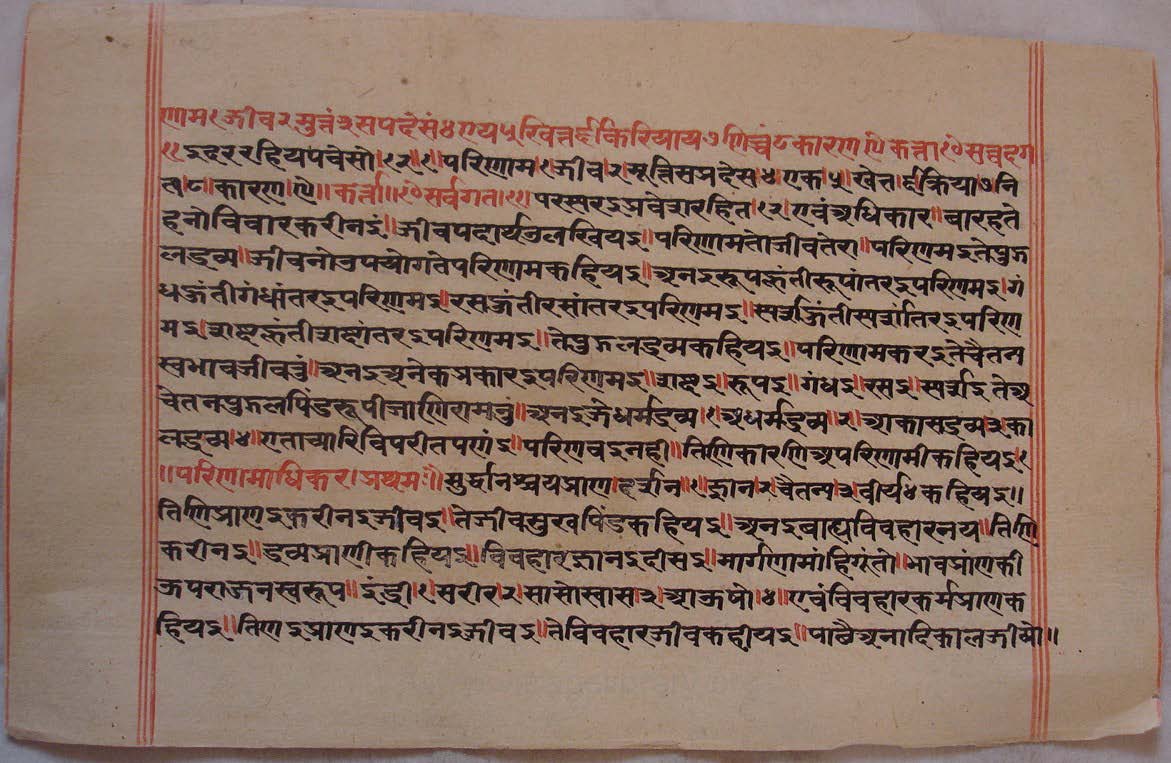 णाम१जीव२मुत्तं३सपदेसं४एय५खित्त६किरियाय७णिच्चं८कारण९कत्ता१०सव्वदग
११इदररहियपवेसो॥१२॥१॥परिणाम१जीव२मूर्त्तिसप्रदेस४एक५खेत्त६क्रिया७नि
त८कारण९॥कर्त्ता॥१०सर्वगत११परस्परइप्रवेशरहित१२एवंअधिकार॥बारहते
हनोविचारकरीनइं॥जीवपदार्थउलखियइ॥परिणामतोजीवतेरा॥परिणमइतेपुज
लद्रव्य॥जीवनोउपयोगतेपरिणामकहियइ॥अनइरूपहुंतीरूपांतरइपरिणमइ॥गं
धहुंतीगंधांतरइपरिणमइ॥रसहुंतीरसांतरइपरिणमइ॥स्पर्शहुंतीस्पर्शांतरइपरिण
मइ॥शब्दहुंतीशब्दांतरइपरिणमइ॥तेपुजलद्रव्यकहियइ॥परिणामकरइतेचैतन
स्वभावजीवनुं॥अनइअनेकप्रकारइपरिणमइ॥शब्दइ॥रूपइ॥गंधइ॥रसइ॥स्पर्शइतेअ
चेतनपुजलपिंडरूपीजाणि॥अनइजेधर्मद्रव्य॥१अधर्मद्रव्य॥२॥आकासद्रव्य३का
लद्रव्य॥४॥एताच्यारिविपरीतपणंइ॥परिणवइनही॥तिणिकारणिअपरिणामीकहियइ॥१
॥परिणामाधिकार॥प्रथमः॥सुद्धनिश्चयप्राण॥दर्शन॥१॥ज्ञान२चैतन्य३वीर्य४कहियइ॥
तिणिप्राणइकरीनइजीवइ॥तेजीवसुखपिंडकहियइ॥अनइबाह्यविवहारनय॥तिणि
करीनइ॥द्रव्यप्राणीकहियइ॥विवहारइज्ञानइदीसइ॥मार्गणामांहि॥भावप्राणकी
स्वरूप॥इंद्री॥१॥सरीर२॥सासोस्वास३॥आऊषो॥४॥एवंविवहारकर्मप्राणक
हियइ॥तिणइप्राणइकरीनइजीवइ॥तेविवहारजीवकहीयइ॥अनादिकालजीयो॥